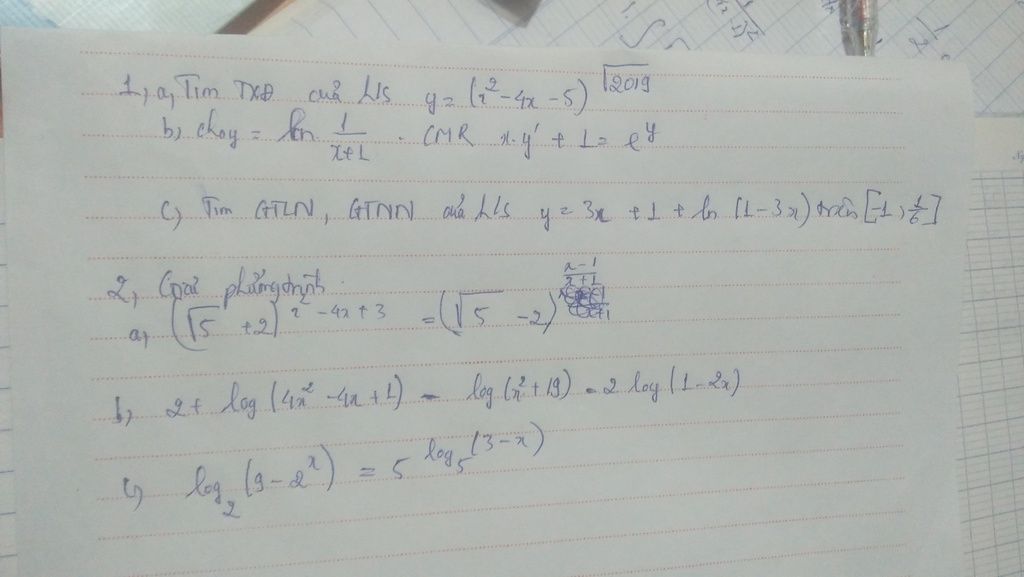 1, a, Tìm TXĐ của H/S y = (x² - 4x - 5)^√2019
b, cho y = ln 1/(x+1) . CMR x.y' + 1 = e^y
c, Tìm GTLN, GTNN của H/S y = 3x + 1 + ln (1 - 3x) trên [-1, 1/6]
2, Giải phương trình
a, (√5 + 2)^(x² - 4x + 3) = (√5 - 2)^((x-1)/(x+1))
b, 2 + log (4x² - 4x + 1) - log (x² + 19) = 2 log (1 - 2x)
c, log₂ (9 - 2^x) = 5^(log₅ (3 - x))